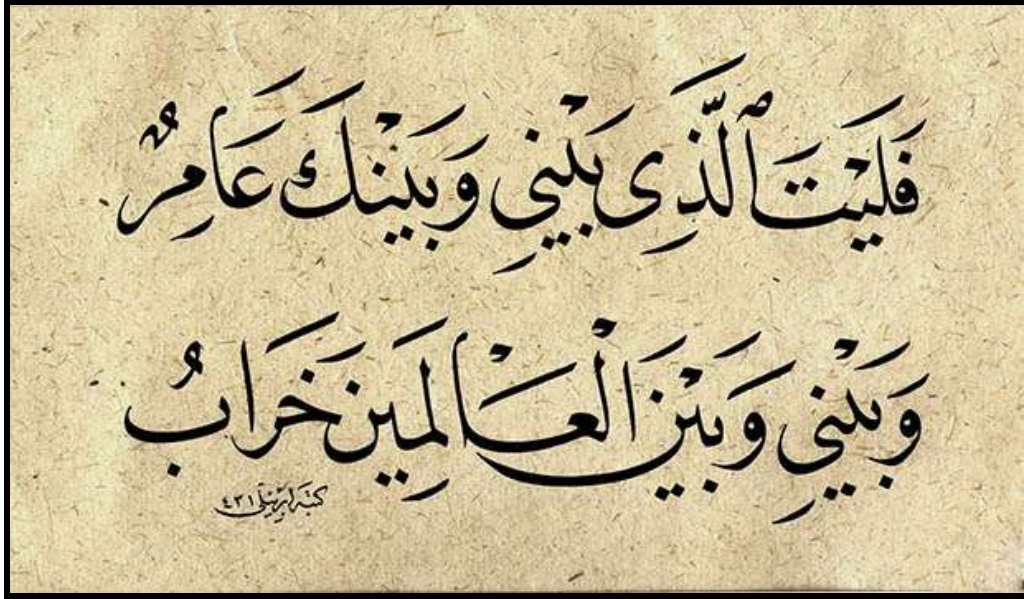 فَلَيْتَ ٱلَّذِى بَيْنِي وَبَيْنَكَ عَامِرٌ
وَبَيْنِي وَبَيْنَ الْعَالَمِينَ خَرَابُ
كتبه